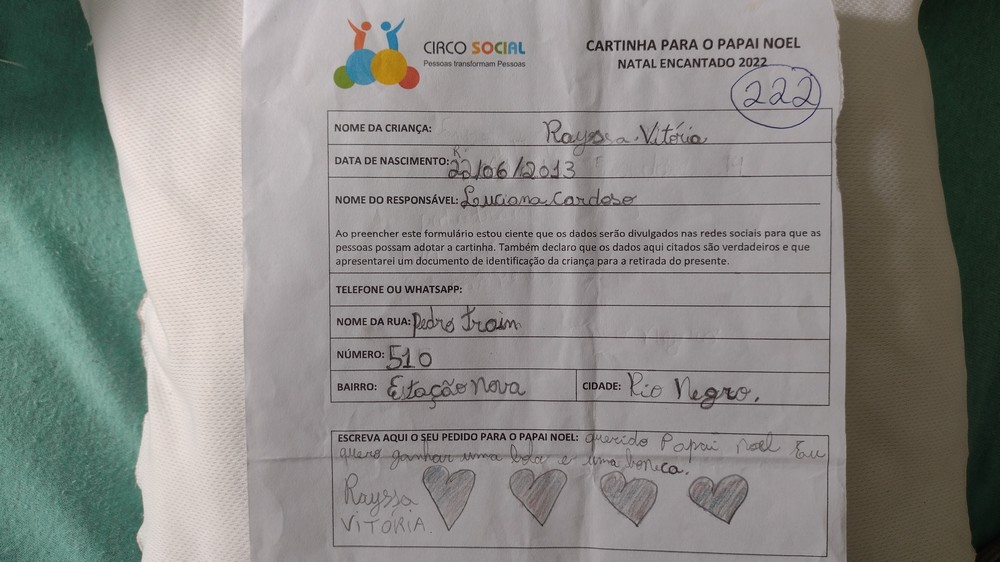 CIRCO SOCIAL
Pessoas transformam Pessoas
CARTINHA PARA O PAPAI NOEL
NATAL ENCANTADO 2022
222
NOME DA CRIANÇA: Rayssa Vitória
DATA DE NASCIMENTO: 22/06/2013
NOME DO RESPONSÁVEL: Luciana Cardoso
Ao preencher este formulário estou ciente que os dados serão divulgados nas redes sociais para que as
pessoas possam adotar a cartinha. Também declaro que os dados aqui citados são verdadeiros e que
apresentarei um documento de identificação da criança para a retirada do presente.
TELEFONE OU WHATSAPP:
NOME DA RUA: Pedro Train
NÚMERO: 510
BAIRRO: Estação Nova CIDADE: Rio Negro.
ESCREVA AQUI O SEU PEDIDO PARA O PAPAI NOEL: querido Papai Noel Eu
quero ganhar uma bola e uma boneca.
Rayssa
VITÓRIA.